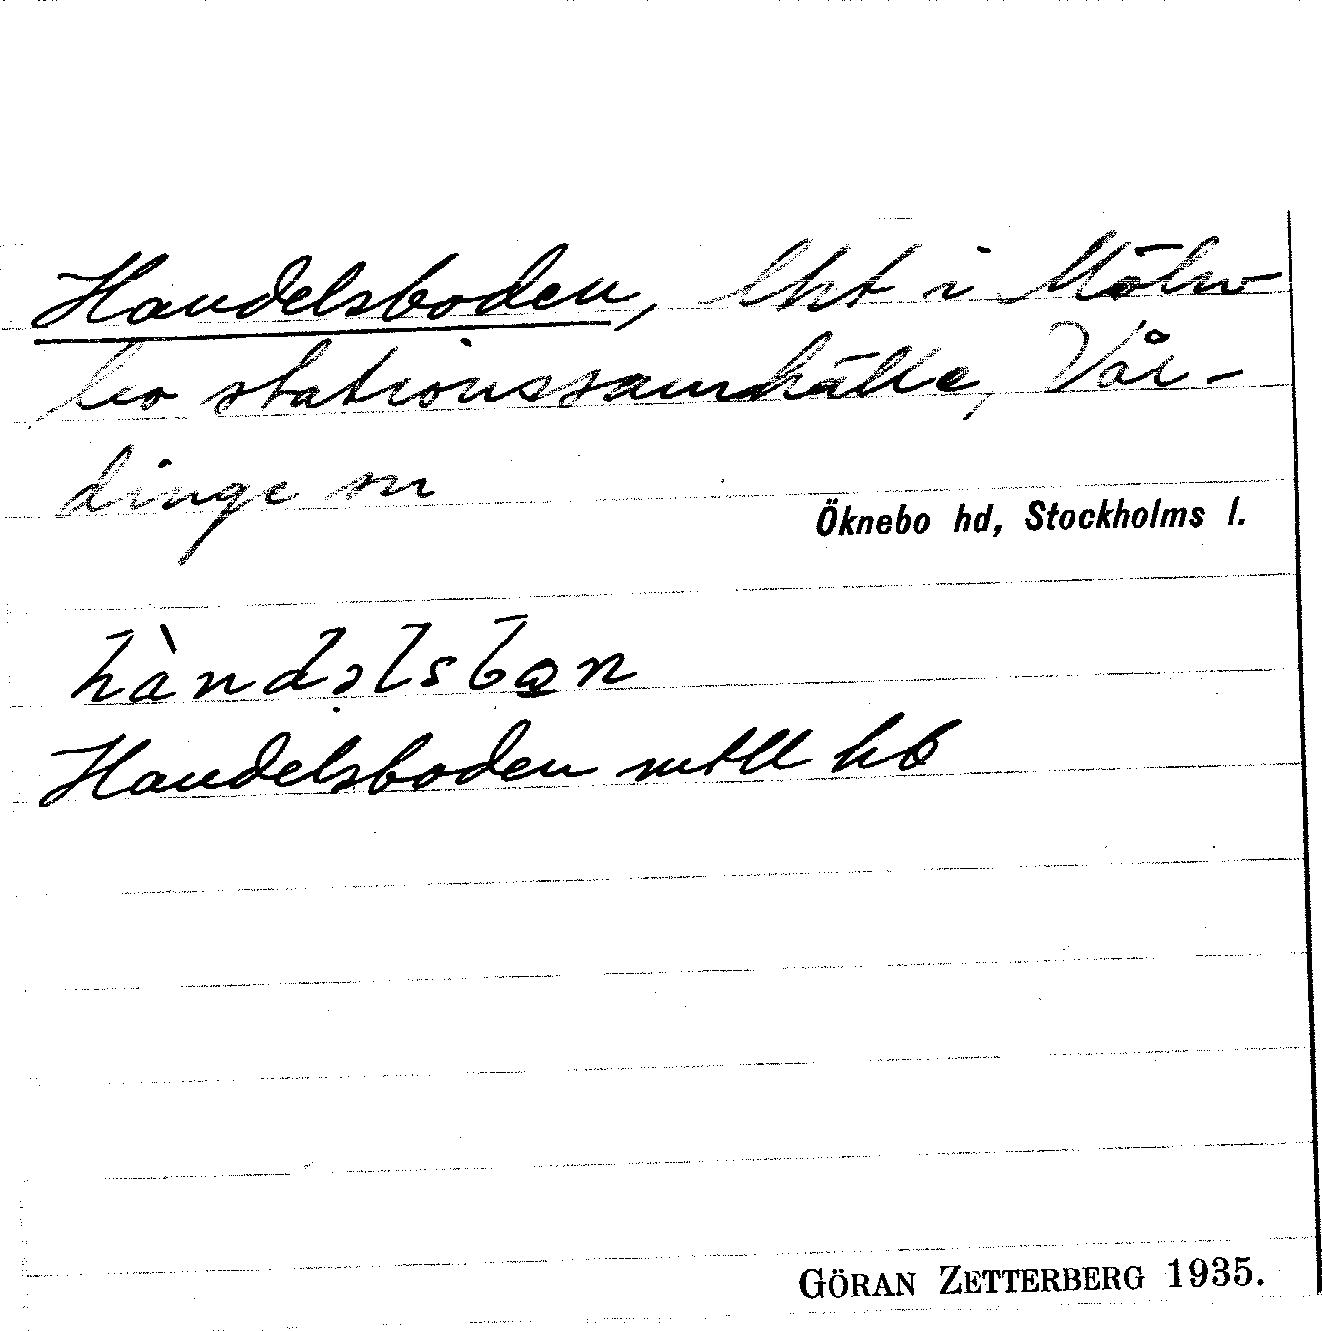 Handelsboden, lht i Möln-
bo stationssamhälle, Vår-
dinge sn
Öknebo hd, Stockholms l.
hàndəlsbọn
Handelsboden mtll hb
GÖRAN ZETTERBERG 1935.